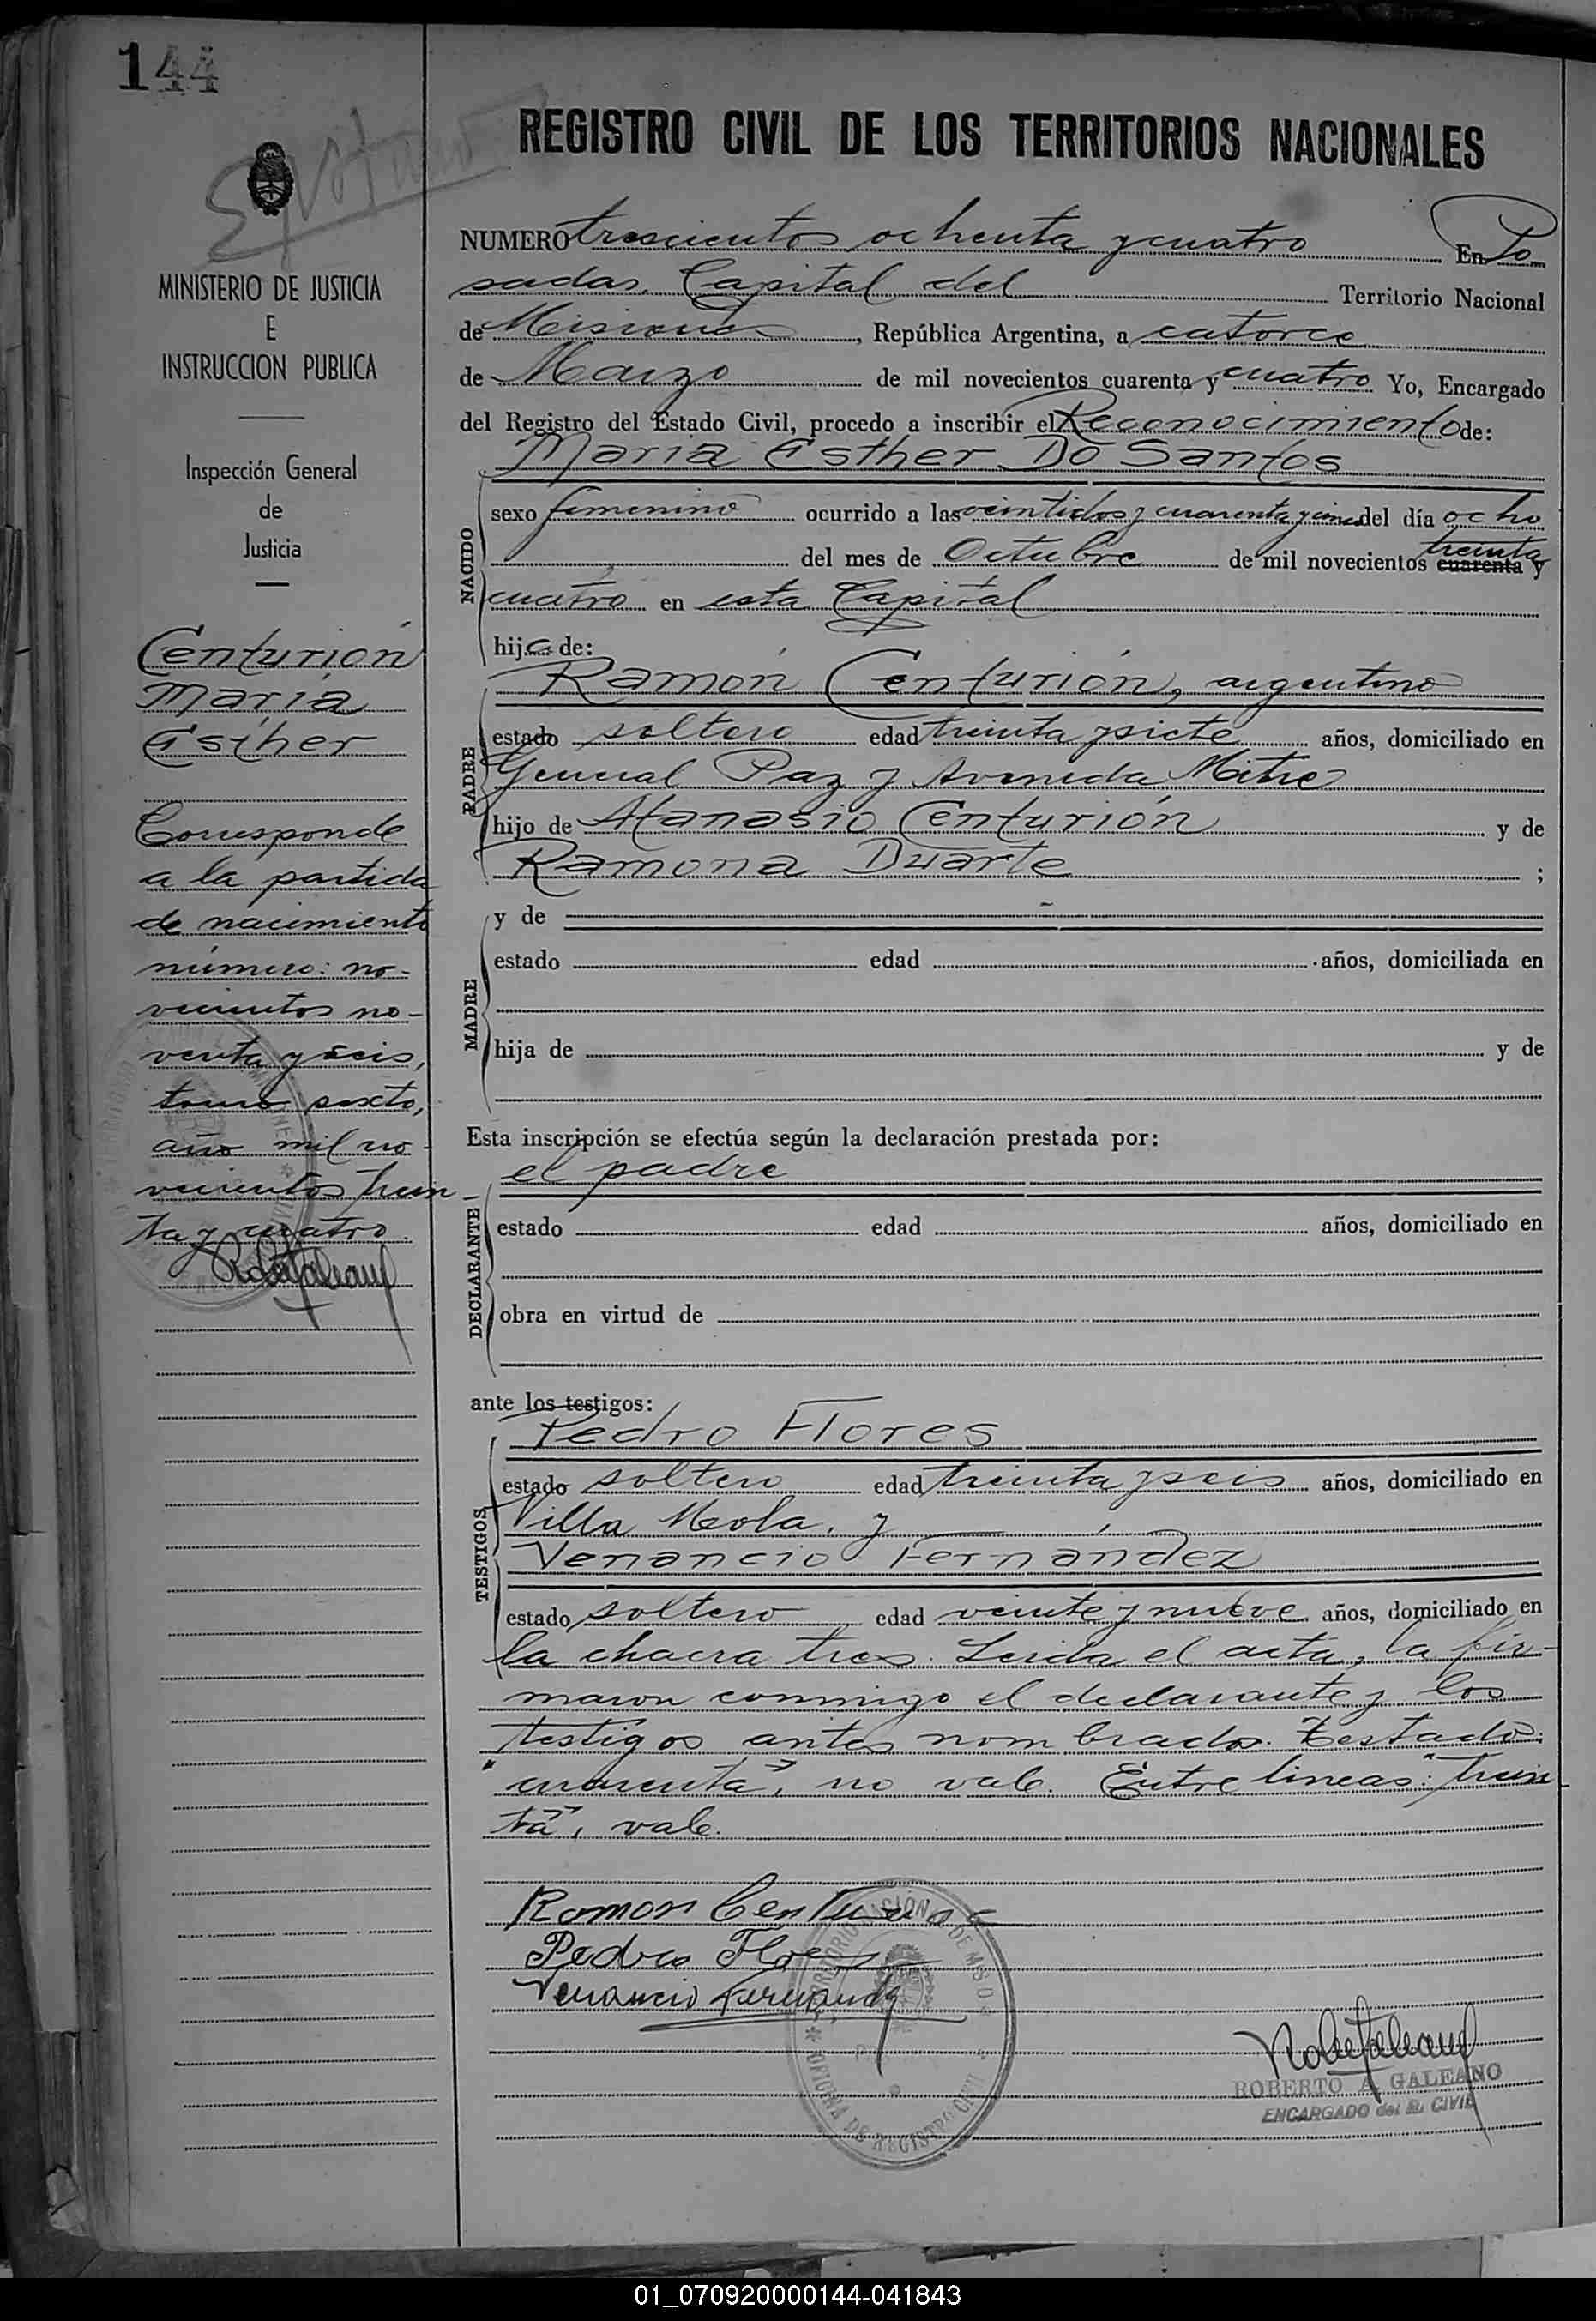 144
REGISTRO CIVIL DE LOS TERRITORIOS NACIONALES
MINISTERIO DE JUSTICIA
E
INSTRUCCION PUBLICA
Inspección General
de
Justicia
Centurión
María
Esther
Corresponde
a la partida
de nacimiento
número: no-
vecientos no-
venta y seis,
tomo sexto,
año mil no-
vecientos trein-
ta y cuatro.
NUMERO trescientos ochenta y cuatro En Po
sadas, Capital del Territorio Nacional
de Misiones, República Argentina, a catorce
de Marzo de mil novecientos cuarenta y cuatro Yo, Encargado
del Registro del Estado Civil, procedo a inscribir el Reconocimiento de:
Maria Esther Do Santos
NACIDO
sexo femenino ocurrido a las veintidos y cuarenta y cinco del día ocho
del mes de Octubre de mil novecientos treinta cuarenta y
cuatro en esta Capital
hija de:
Ramón Centurión, argentino
PADRE
estado soltero edad treinta y siete años, domiciliado en
General Paz y Avenida Mitre
hijo de Atanasio Centurión y de
Ramona Duarte ;
MADRE
y de
estado edad años, domiciliada en
hija de y de
Esta inscripción se efectúa según la declaración prestada por:
el padre
DECLARANTE
estado edad años, domiciliado en
obra en virtud de
ante los testigos:
Pedro Flores
TESTIGOS
estado soltero edad treinta y seis años, domiciliado en
Villa Meola, y
Venancio Fernández
estado soltero edad veinte y nueve años, domiciliado en
la chacra tres. Leida el acta, la fir-
maron conmigo el declarante y los
testigos antes nombrados. Testado:
"cuarenta", no vale. Entre lineas: "trein-
ta", vale.
Ramon Centurion
Pedro Flores
Venancio Fernandez
OFICINA DE REGISTRO CIVIL
ROBERTO A. GALEANO
ENCARGADO del R. CIVIL
01_070920000144-041843